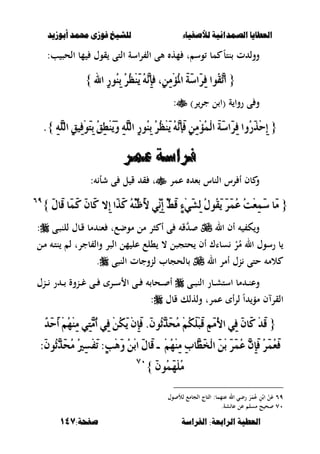 العطايا الصمدانية للأصفياء
للشيخ فوزى محمد أبوزيد
وولدت بنتاً كما توسم، فهذه هى الفراسة التى يقول فيها الحبيب:
{ اتَّقُوا فِرَاسَةَ الْمُؤْمِنِ، فَإِنَّهُ يَنْظُرُ بِنُورِ اللهِ }
وفى رواية (ابن جرير) :
{ إحْذَرُوا فِرَاسَةَ الْمُؤْمِنِ فَإِنَّهُ يَنْظُرُ بِنُورِ اللَّهِ وَيَنْطِقُ بِتَوْفِيقِ اللَّهِ } .
فراسة عمر
وكان أفرس الناس بعده عمر ، فقد قيل فى شأنه:
{ مَا سَمِعْتُ عُمَرَ يَقُولُ لِشَيْءٍ قَطُّ إِنِّي لأَظُنُّهُ كَذَا إِلا كَانَ كَمَا قَالَ } ٦٩
ويكفيه أن الله صدَّقه فى أكثر من موضع، فعندما قال للنبى :
يا رسول الله مُرْ نساءك أن يحتجبن لا يطلع عليهن البر والفاجر، لم ينته من
كلامه حتى نزل أمر الله بالحجاب لزوجات النبى.
وعندما استشار النبى أصحابه فى الأسرى فى غزوة بدر نزل
القرآن مؤيداً لرأى عمر، ولذلك قال :
{ قَدْ كَانَ فِي الأُمَمِ قَبْلَكُمْ مُحَدَّثُونَ. فَإِنْ يَكُنْ فِي أُمَّتِي مِنْهُمْ أَحَدٌ
فَعُمَرُ فَإِنَّ عُمَرَ بْنَ الْخَطَّابِ مِنْهُمْ ـ قَالَ ابْنُ وَهْبٍ: تَفْسِيرُ مُحَدَّثُونَ:
مُلْهَمُونَ } ٧٠
٦٩ عَنِ ابْنِ عُمَرَ رضي الله عنهما: التاج الجامع للأصول
٧٠ صحيح مسلم عن عائشة.
العطية الرابعة: الفراسة
صفحة:١٤٧